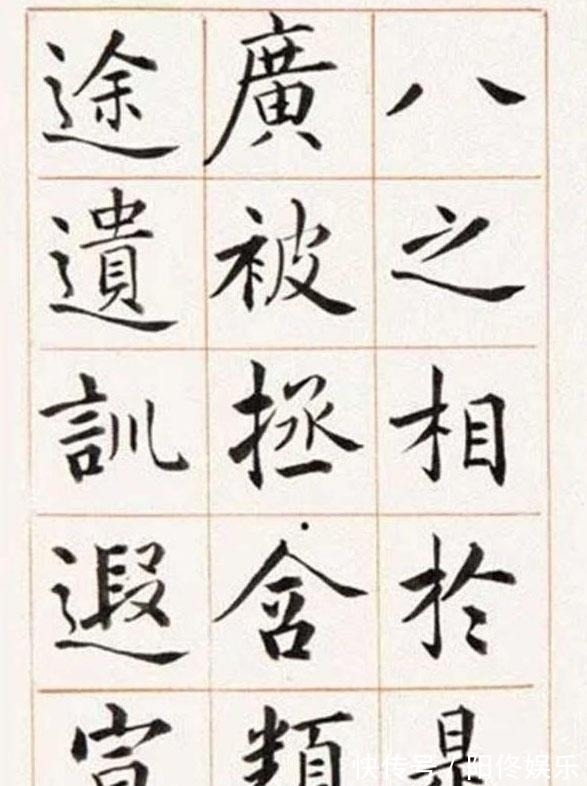 八之相於是
廣被拯含類
途遺訓遐宣
快传号 / 阳佟娱乐